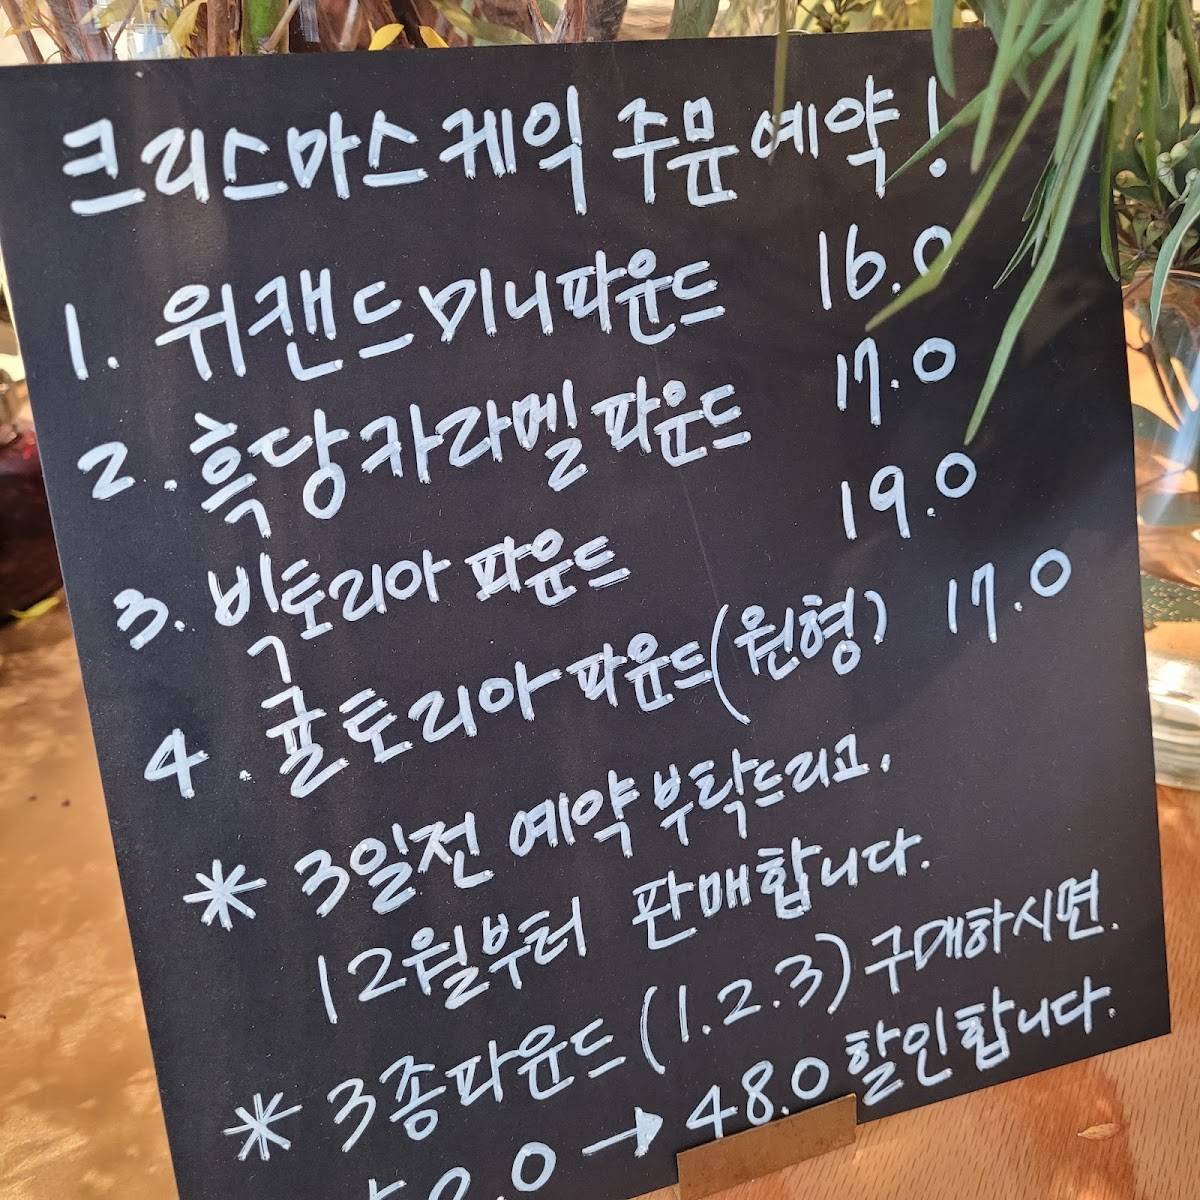 크리스마스케익 주문 예약!
1. 위캔드 미니파운드 16.0
2. 흑당카라멜파운드 17.0
3. 빅토리아 파운드 19.0
4. 귤토리아파운드(원형) 17.0
* 3일전 예약 부탁드리고.
12월부터 판매합니다.
* 3종파운드(1.2.3)구매하시면.
2.0 → 48.0 할인합니다.